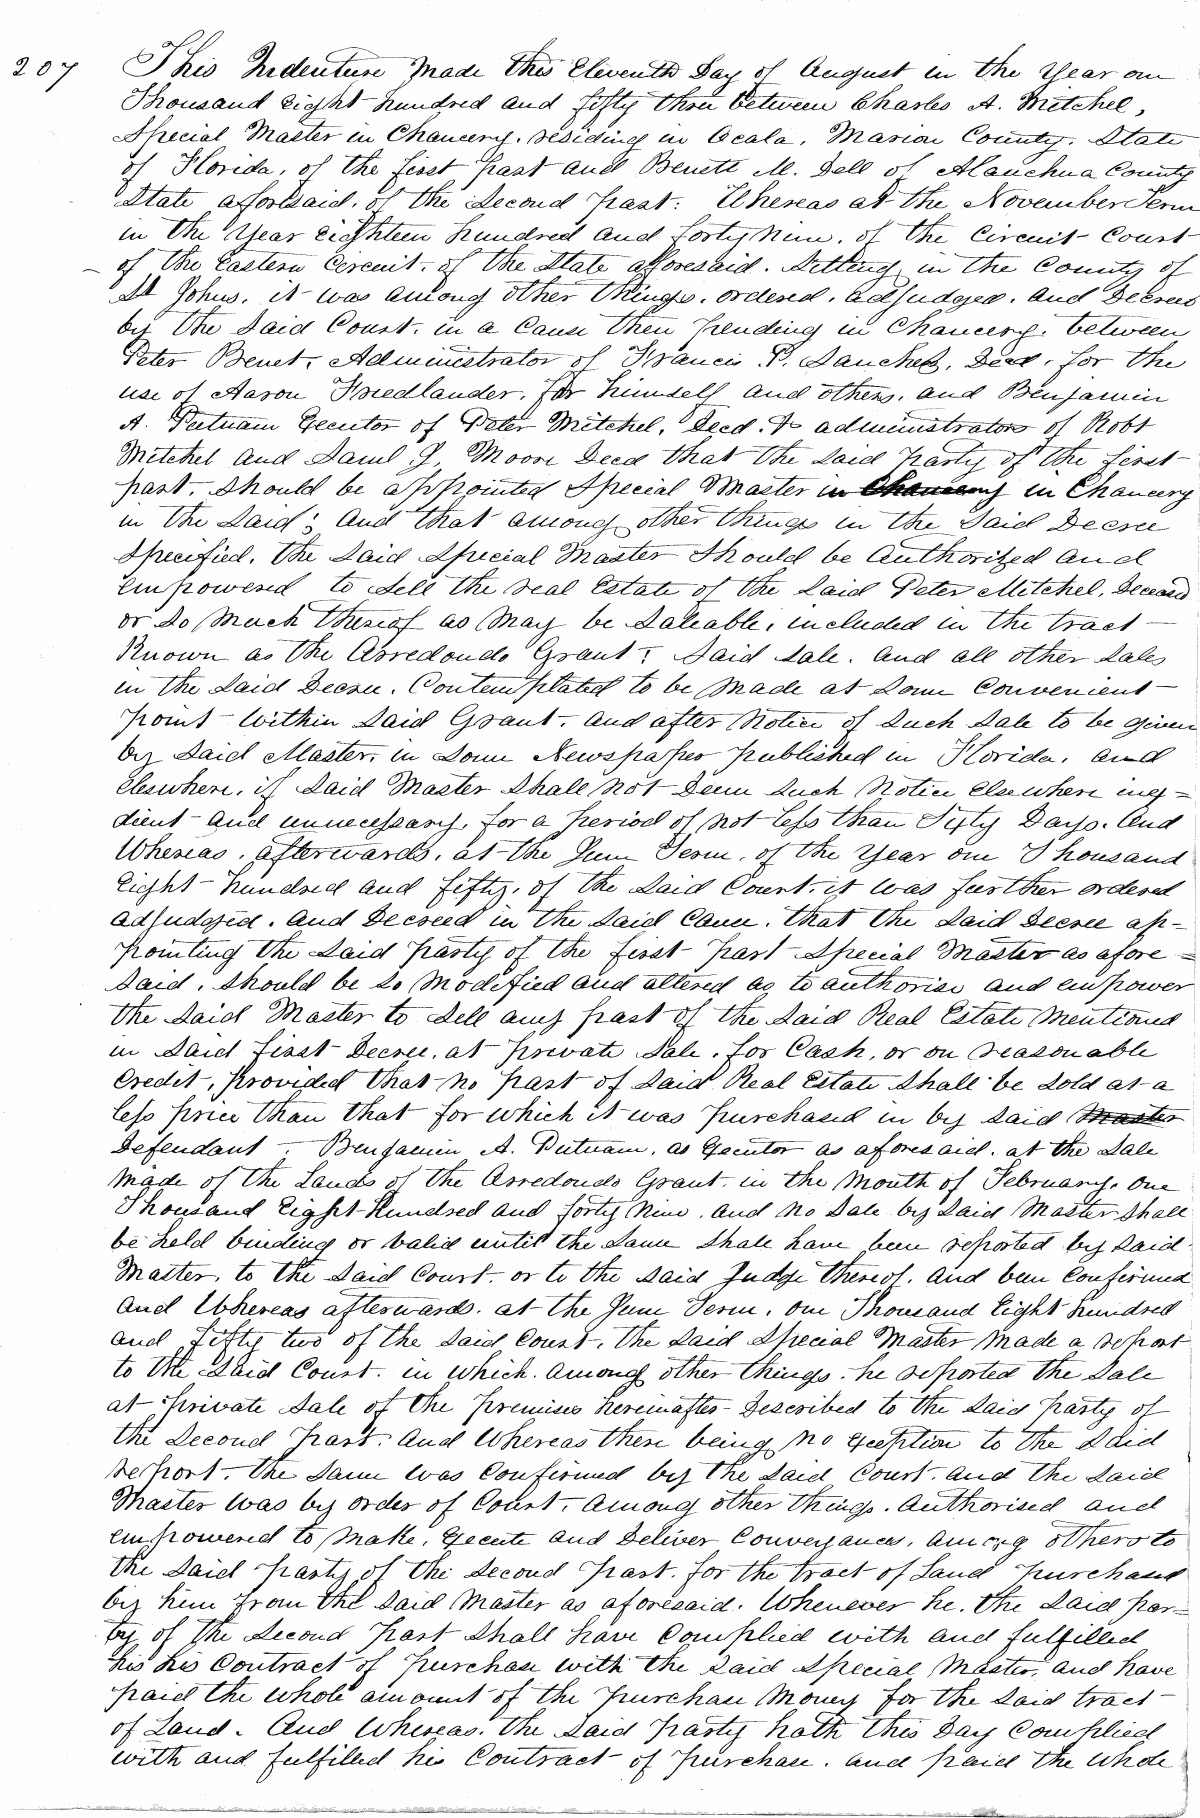 207 This Indenture Made this Eleventh Day of August in the Year one
Thousand Eight hundred and fifty three between Charles A. Mitchel,
Special Master in Chancery, residing in Ocala, Marion County, State
of Florida, of the first part and Benett M. Dell of Alauchua County
State aforesaid, of the Second part: Whereas at the November Term
in the Year Eighteen hundred and forty Nine, of the Circuit Court
of the Eastern Circuit, of the State aforesaid. Sitting in the County of
St Johns, it was among other things, ordered, adjudged, and Decreed
by the Said Court, in a Cause then pending in Chancery, between
Peter Benet, Administrator of Francis P. Sanchez, Decd, for the
use of Aaron Friedlander, for himself and others, and Benjamin
A. Putnam Executor of Peter Mitchel, Decd. & administrators of Robt
Mitchel and Saml G. Moore Decd that the Said party of the first
part, Should be appointed Special Master in Chancery in Chancery
in the Said; And that among other things in the Said Decree
Specified, the Said Special Master Should be Authorized and
empowered to Sell the real Estate of the Said Peter Mitchel, Deceased
or So Much thereof as May be Saleable, included in the tract
Known as the Arredondo Grant; Said Sale, and all other Sales
in the Said Decree, Contemplated to be Made at Some Convenient
point within Said Grant, and after Notice of Such Sale to be given
by Said Master, in Some Newspaper published in Florida, and
Elsewhere, if Said Master Shall Not Deem Such Notice Elsewhere inex=
dient and unnecessary, for a period of not less than Sixty Days. And
Whereas, afterwards, at the June Term, of the Year one Thousand
Eight hundred and fifty, of the Said Court, it was further ordered
adjudged, and Decreed in the Said Cause, that the Said Decree ap=
pointing the Said party of the first part Special Master as afore=
said, Should be So Modified and altered as to authorise and empower
the Said Master to Sell any part of the Said Real Estate Mentioned
in Said first Decree, at private Sale, for Cash, or on reasonable
Credit, provided that no part of Said Real Estate Shall be Sold at a
less price than that for which it was purchased in by Said Master
Defendant Benjamin A. Putnam, as Executor as aforesaid, at the Sale
Made of the Lands of the Arredondo Grant in the Month of February, One
Thousand Eight Hundred and forty Nine, and No Sale by Said Master Shall
be held binding or valid until the Same Shall have been reported by Said
Master, to the Said Court, or to the Said Judge thereof, and been Confirmed
And Whereas afterwards, at the June Term, one Thousand Eight hundred
and fifty two of the Said Court, the Said Special Master Made a report
to the Said Court, in which, among other things, he reported the Sale
at private Sale of the premises hereinafter Described to the Said party of
the Second part: And Whereas there being no exception to the Said
report, the Same was Confirmed by the Said Court, and the Said
Master was by order of Court, among other things, authorised and
empowered to Make, Execute and Deliver Conveyances, among others to
the Said party of the Second part, for the tract of Land purchased
by him from the Said Master as aforesaid. Whenever he, the Said par=
ty of the Second part Shall have Complied with and fulfilled
his his Contract of purchase with the Said Special Master, and have
paid the whole amount of the purchase Money for the Said tract
of Land. And Whereas, the Said party hath this Day Complied
with and fulfilled his Contract of purchase, and paid the Whole